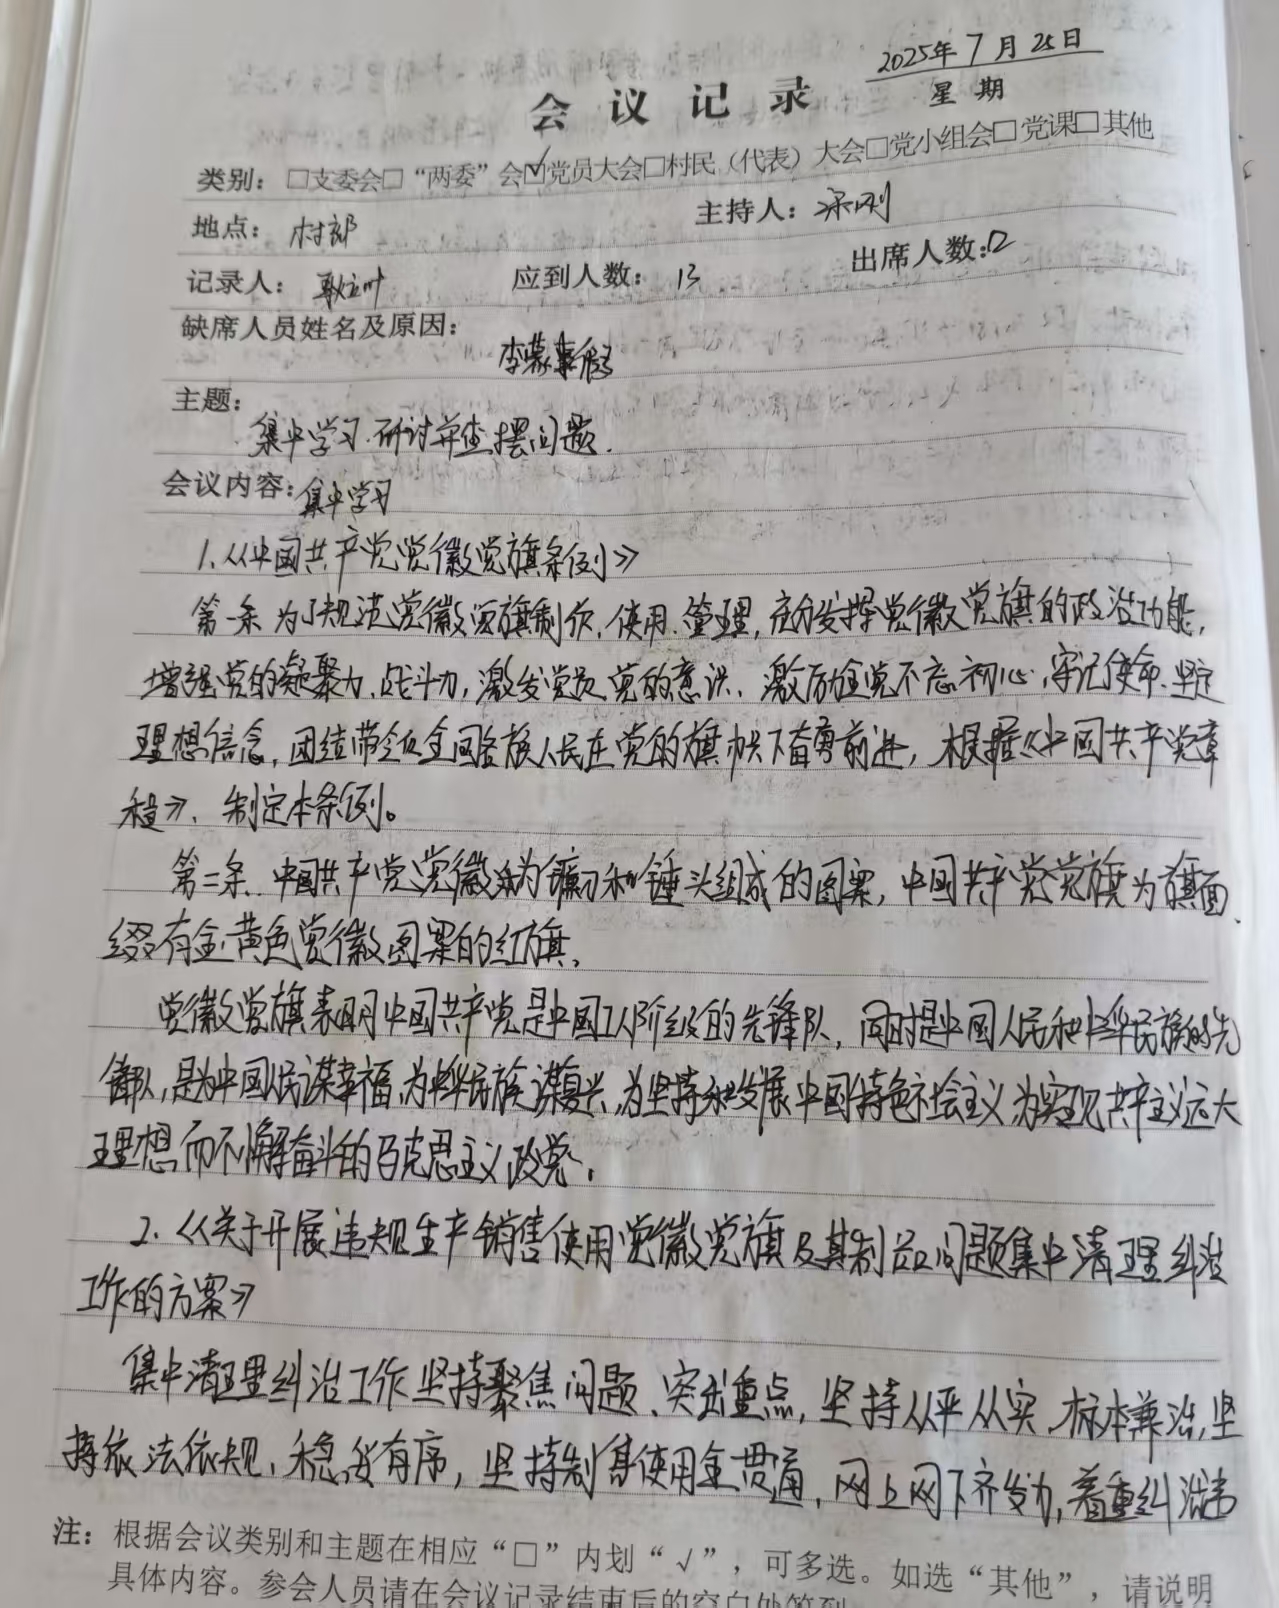 2025年7月25日
会议记录
星期
类别：□支委会□“两委”会☑党员大会□村民（代表）大会□党小组会□党课□其他
地点：村部 主持人：梁刚
记录人： 应到人数：13 出席人数：12
缺席人员姓名及原因：
李蒙事假
主题：
集中学习、研讨并查摆问题.
会议内容：集中学习
1.《中国共产党党徽党旗条例》
第一条 为了规范党徽党旗制作、使用、管理，充分发挥党徽党旗的政治功能，
增强党的凝聚力、战斗力，激发党员党的意识、激励全党不忘初心、牢记使命、坚定
理想信念，团结带领全国各族人民在党的旗帜下奋勇前进，根据《中国共产党章
程》，制定本条例。
第二条 中国共产党党徽为镰刀和锤头组成的图案，中国共产党党旗为旗面
缀有金黄色党徽图案的红旗，
党徽党旗表明中国共产党是中国工人阶级的先锋队，同时是中国人民和中华民族的先
锋队，是为中国人民谋幸福，为中华民族谋复兴，为坚持和发展中国特色社会主义，为实现共产主义远大
理想而不懈奋斗的马克思主义政党，
2.《关于开展违规生产销售使用党徽党旗及其制品问题集中清理纠治
工作的方案》
集中清理纠治工作坚持聚焦问题、突出重点，坚持从严从实、标本兼治，坚
持依法依规，稳妥有序，坚持制售使用全贯通，网上网下齐发力，着重纠治违
注：根据会议类别和主题在相应“□”内划“√”，可多选。如选“其他”，请说明
具体内容。参会人员请在会议记录结束后的空白处签到